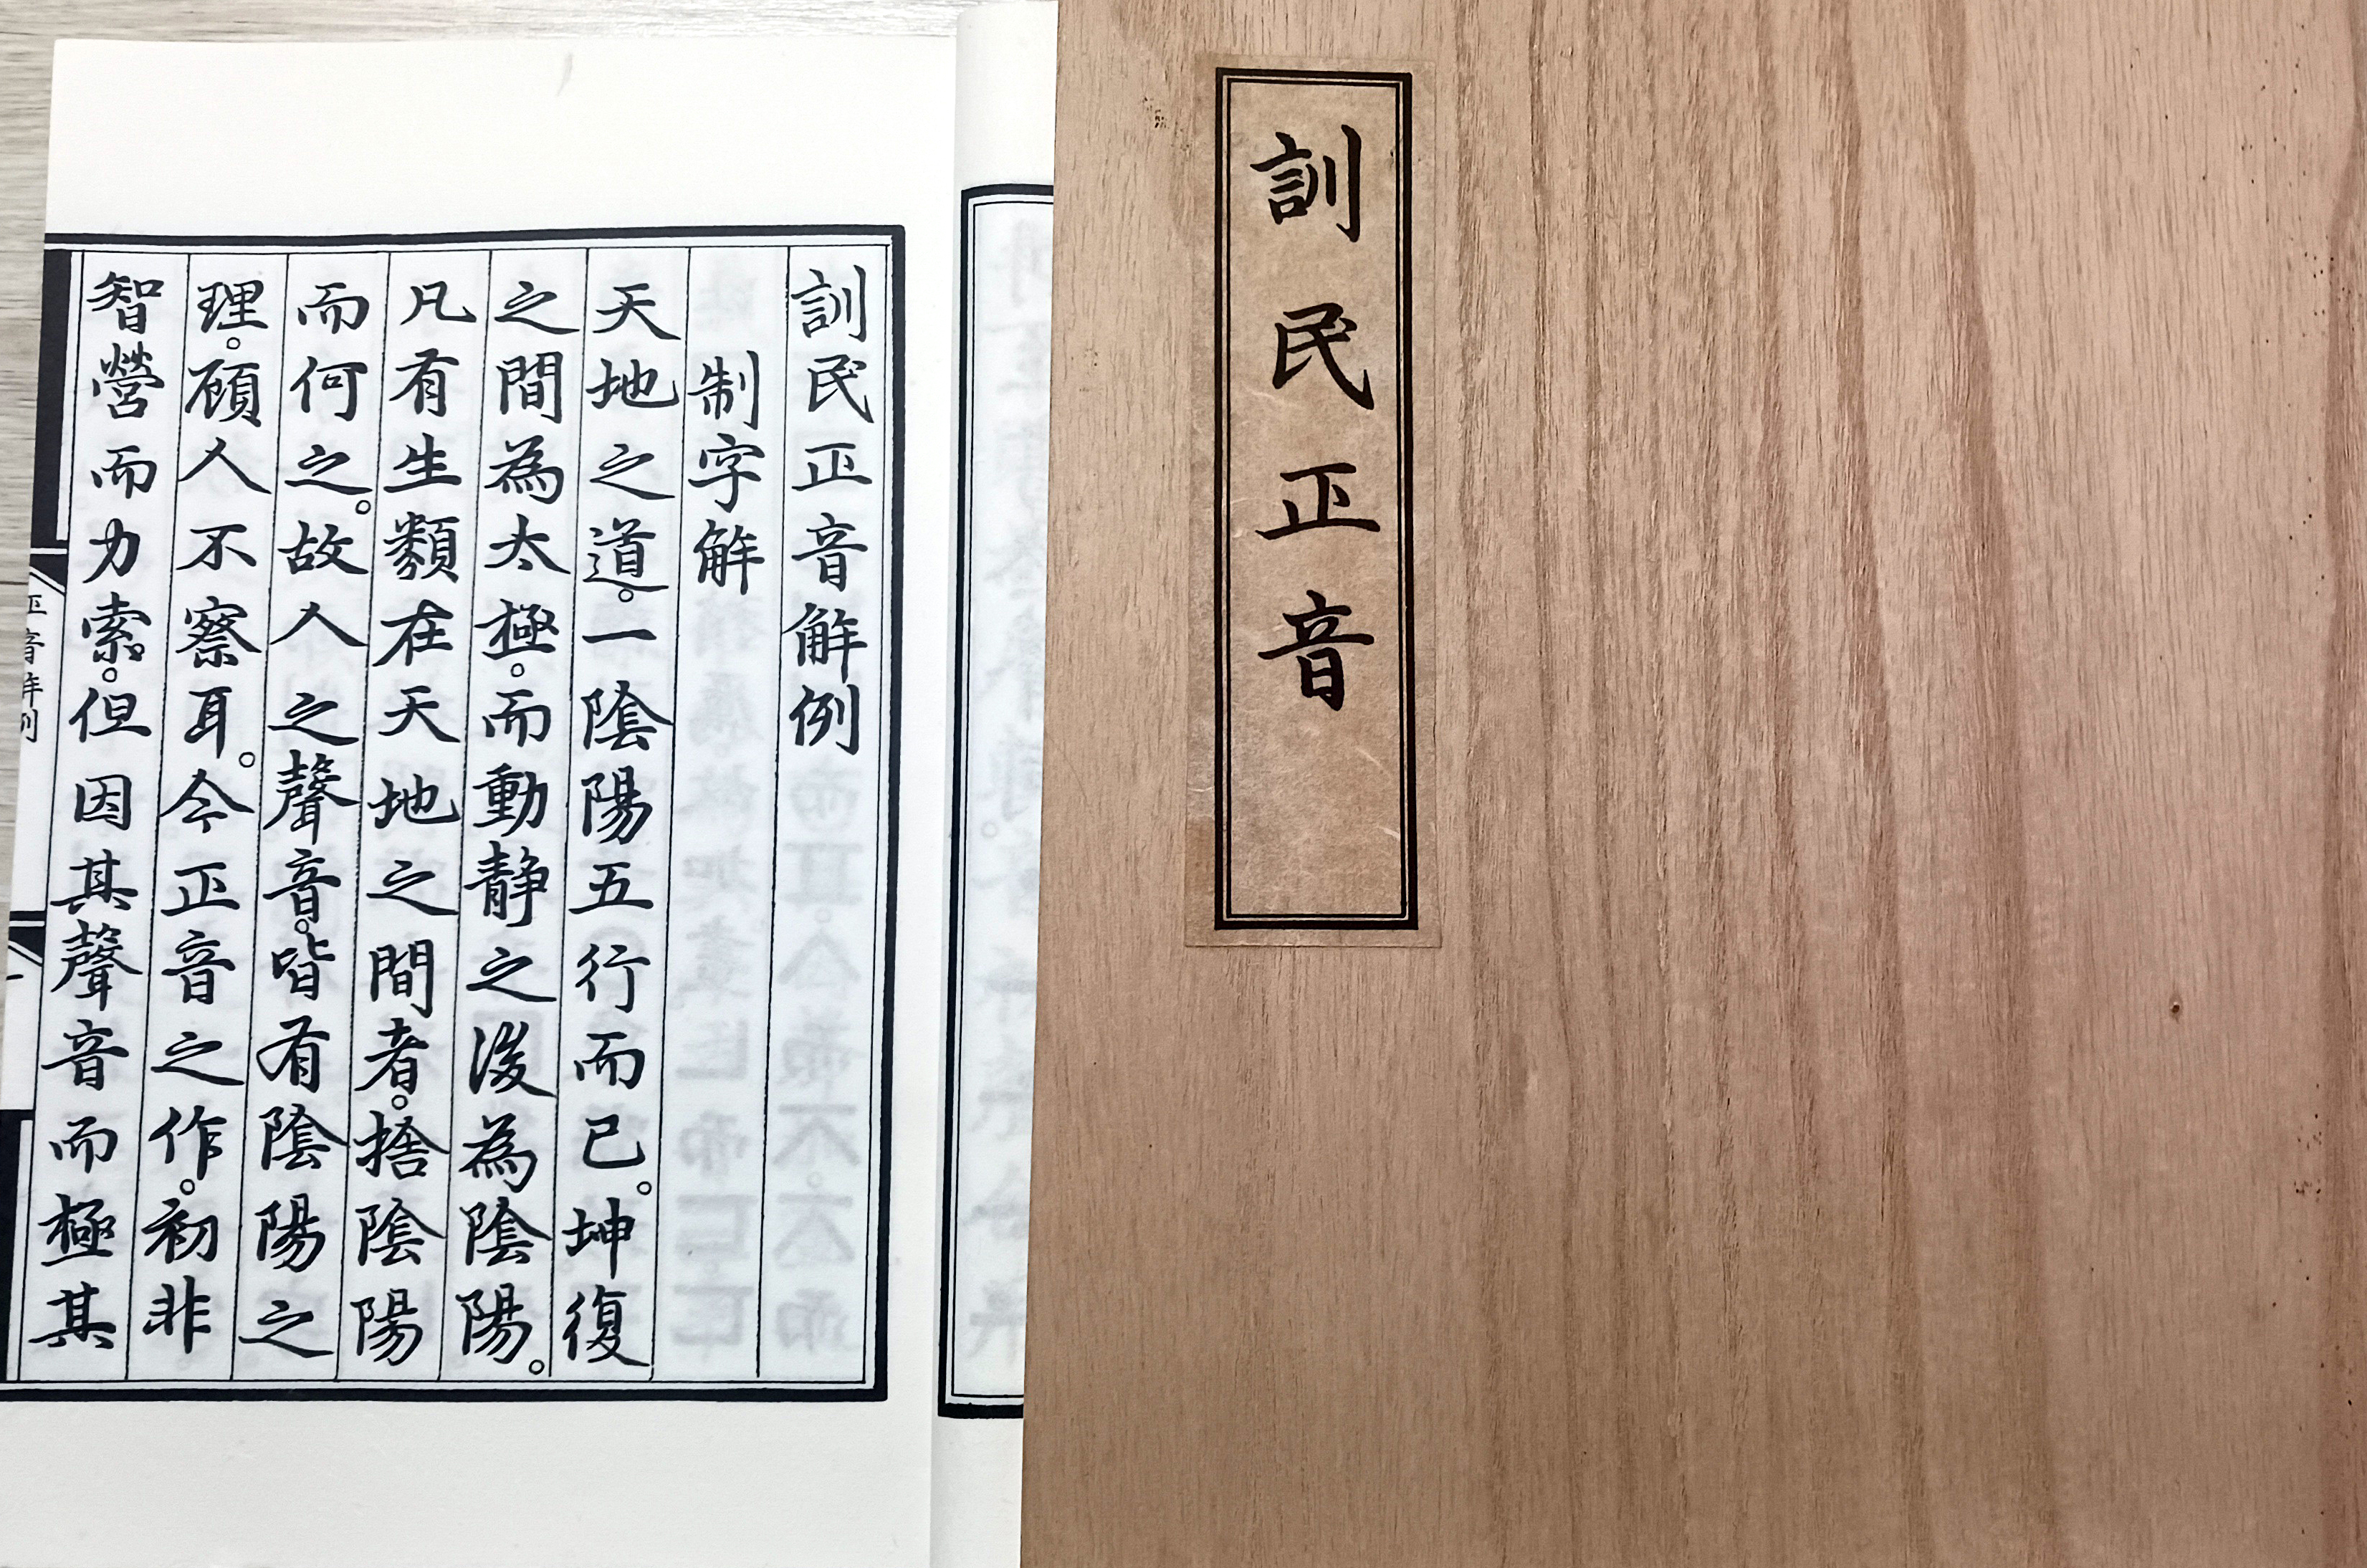 訓民正音
訓民正音解例
制字解
天地之道。一陰陽五行而已。坤復
之間為太極。而動靜之後為陰陽。
凡有生類在天地之間者。捨陰陽
而何之。故人之聲音。皆有陰陽之
理。顧人不察耳。今正音之作。初非
智營而力索。但因其聲音而極其
正音解例